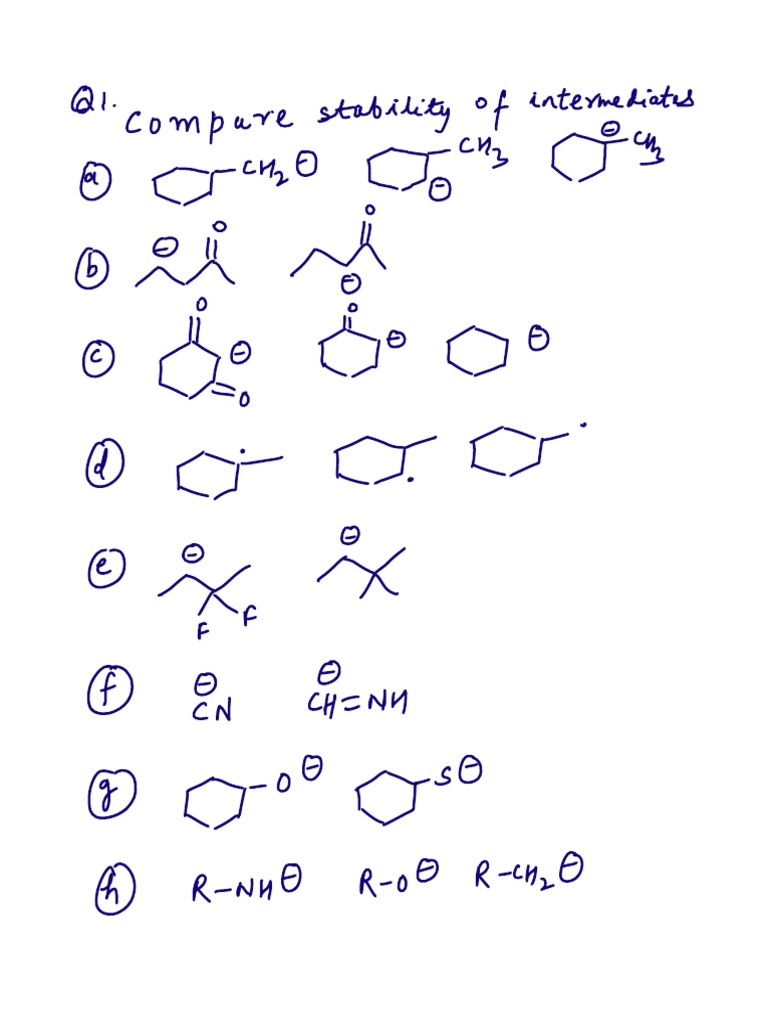 Q1. Compare stability of intermediates
a CH2 ⊖ CH3 ⊖ ⊖ CH3
b ⊖ O O ⊖
c O ⊖ O O ⊖ ⊖
d
e ⊖ F F ⊖
f ⊖ CN ⊖ CH=NH
g -O ⊖ -S ⊖
h R-NH ⊖ R-O ⊖ R-CH2 ⊖